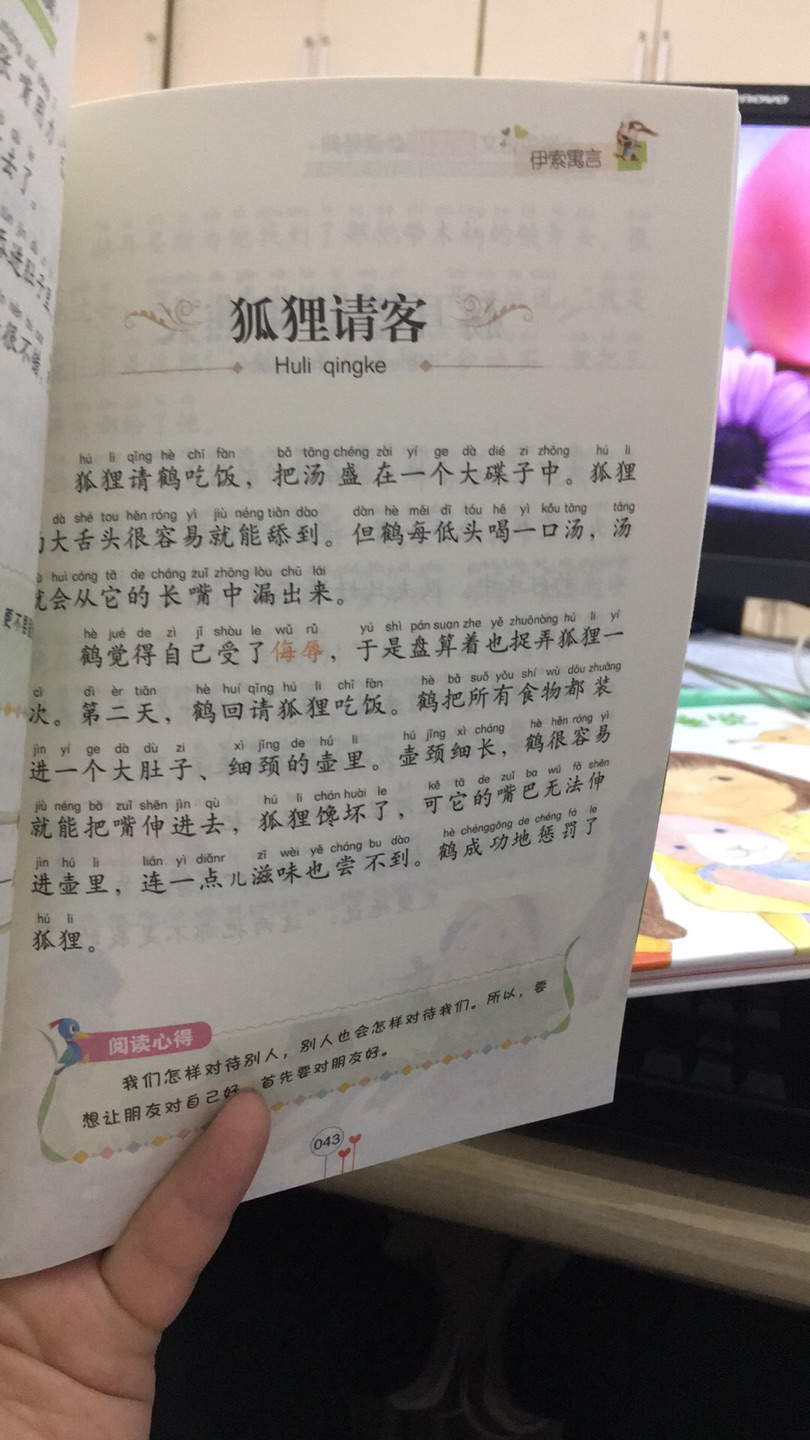 伊索寓言
狐狸请客
Huli qingke
hú li qǐng hè chī fàn bǎ tāng chéng zài yí ge dà dié zi zhōng hú li
狐狸请鹤吃饭，把汤盛在一个大碟子中。狐狸
dà shé tou hěn róng yì jiù néng tiǎn dào dàn hè měi dī tóu hē yì kǒu tāng tāng
大舌头很容易就能舔到。但鹤每低头喝一口汤，汤
huì cóng tā de cháng zuǐ zhōng lòu chū lái
就会从它的长嘴中漏出来。
hè jué de zì jǐ shòu le wǔ rǔ yú shì pán suan zhe yě zhuōnòng hú li yí
鹤觉得自己受了侮辱，于是盘算着也捉弄狐狸一
cì dì èr tiān hè huí qǐng hú li chī fàn hè bǎ suǒ yǒu shí wù dōu zhuāng
次。第二天，鹤回请狐狸吃饭。鹤把所有食物都装
jìn yí ge dà dù zi xì jǐng de hú li hú jǐng xì cháng hè hěn róng yì
进一个大肚子、细颈的壶里。壶颈细长，鹤很容易
jiù néng bǎ zuǐ shēn jìn qù hú li chán huài le kě tā de zuǐ ba wú fǎ shēn
就能把嘴伸进去，狐狸馋坏了，可它的嘴巴无法伸
jìn hú li lián yì diǎnr zī wèi yě cháng bu dào hè chénggōng de chéng fá le
进壶里，连一点儿滋味也尝不到。鹤成功地惩罚了
hú li
狐狸。
阅读心得
我们怎样对待别人，别人也会怎样对待我们。所以，要
想让朋友对自己好，首先要对朋友好。
043